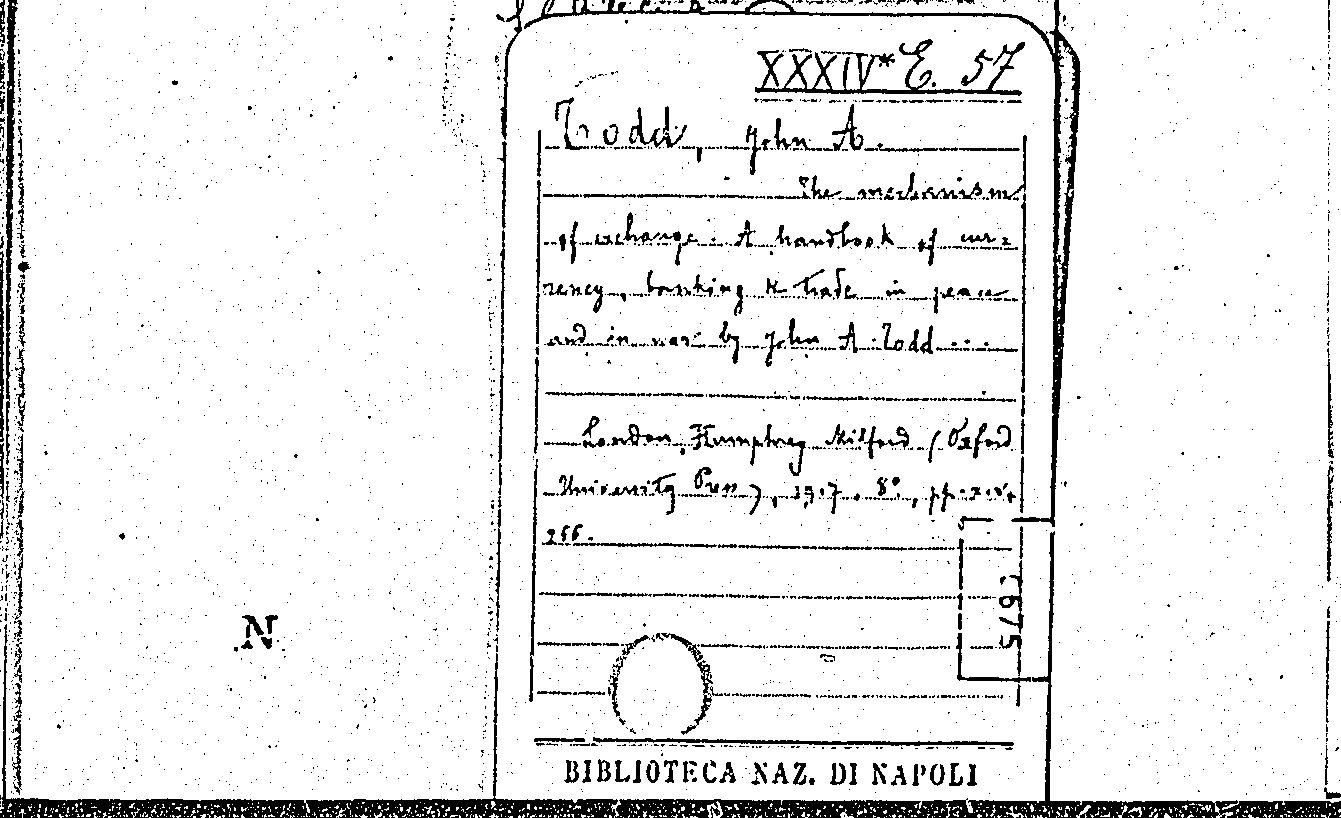 XXXIV* E. 57
Todd, John A.
The mechanism
of exchange. A handbook of cur=
rency, banking & trade in peace
and in war by John A. Todd ...
London, Humphrey Milford (Oxford
University Press), 1917. 8°, pp. xiv+
255.
C675
N
BIBLIOTECA NAZ. DI NAPOLI